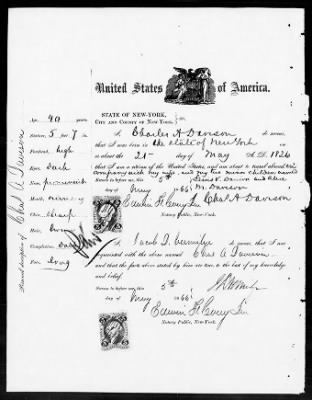 United States of America.
STATE OF NEW-YORK,
CITY AND COUNTY OF NEW-YORK,
I, Charles A Davison do swear,
that I was born in the State of New York
on or about the 21st day of May A.D. 1826
that I am a citizen of the United States, and am about to travel abroad in
company with my wife, and my
Sworn to before me, this 5th
day of May 1866
M. Davison
Chas A Davison
Notary Public, New-York.
I, Jacob D. Vermilye do swear, that I am
acquainted with the above named Chas A Davison
and that the facts above stated by him are true to the best of my knowledge
and belief.
Sworn to before me, this 5th
day of May 1866
Edwin F. Corey Jun
Notary Public, New-York.
Age, 40 years
Stature, 5 feet 7 in.
Forehead, high
Eyes, Dark
Nose, prominent
Mouth,
Chin,
Hair,
Complexion, Dark
Face, Long
Personal description of Chas A Davison